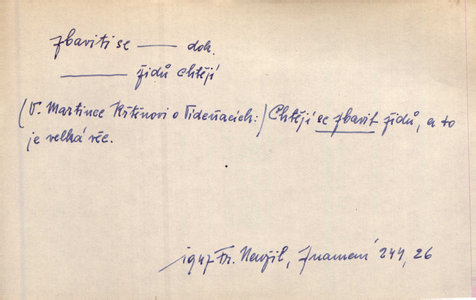 zbaviti se — dok.
— židů chtějí
(V. Martince Křtěnovi o Vídeňácích:) Chtějí se zbavit židů, a to
je velká věc.
1947 Fr. Neužil, Znamení 244, 26